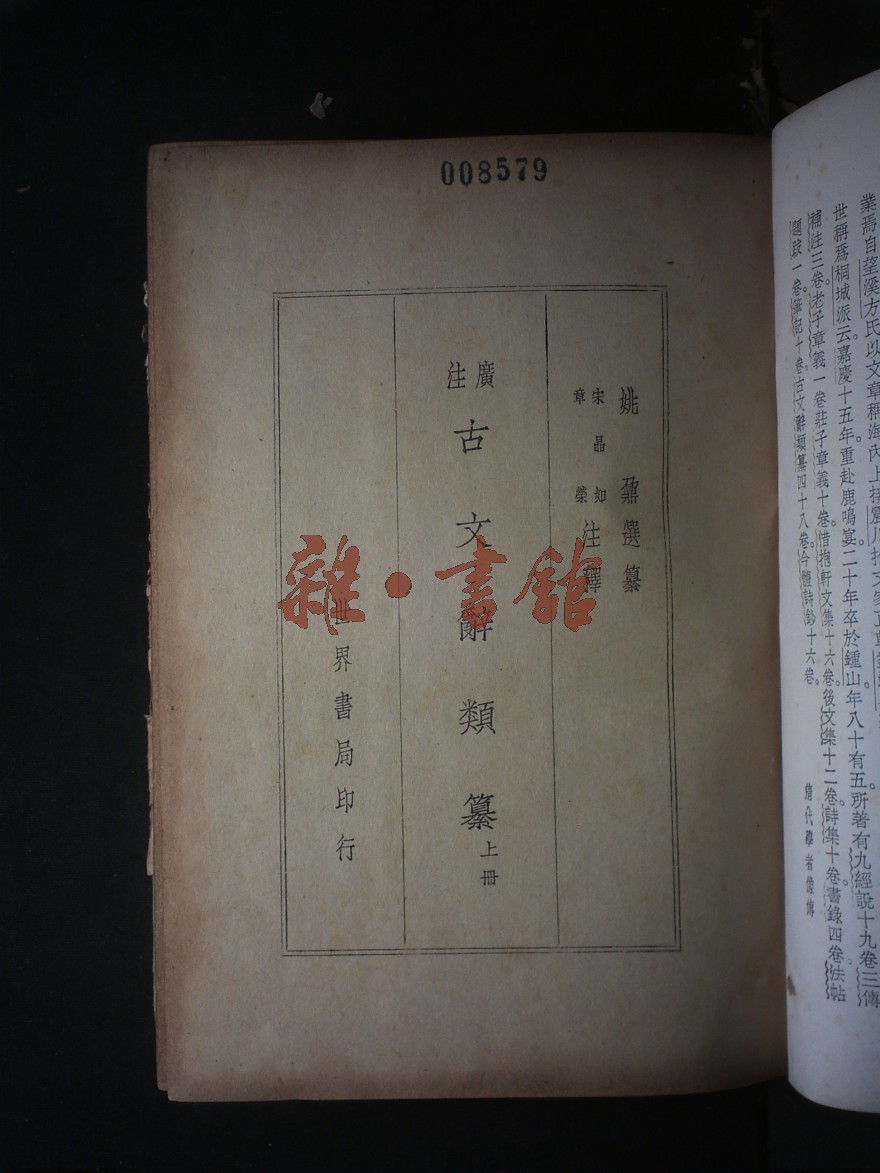 008579
姚鼐選纂
宋晶如
章榮
注釋
廣注
古文辭類纂上冊
世界書局印行
雜·書館
業焉自望溪方氏以文章稱海內上接震川
世稱爲桐城派云嘉慶十五年重赴鹿鳴宴二十年卒於鍾山年八十有五所著有九經說十九卷三傳
補注三卷老子章義一卷莊子章義十卷惜抱軒文集十六卷後文集十二卷詩集十卷書錄四卷法帖
題跋一卷筆記十卷古文辭類纂四十八卷今體詩鈔十六卷
清代學者像傳